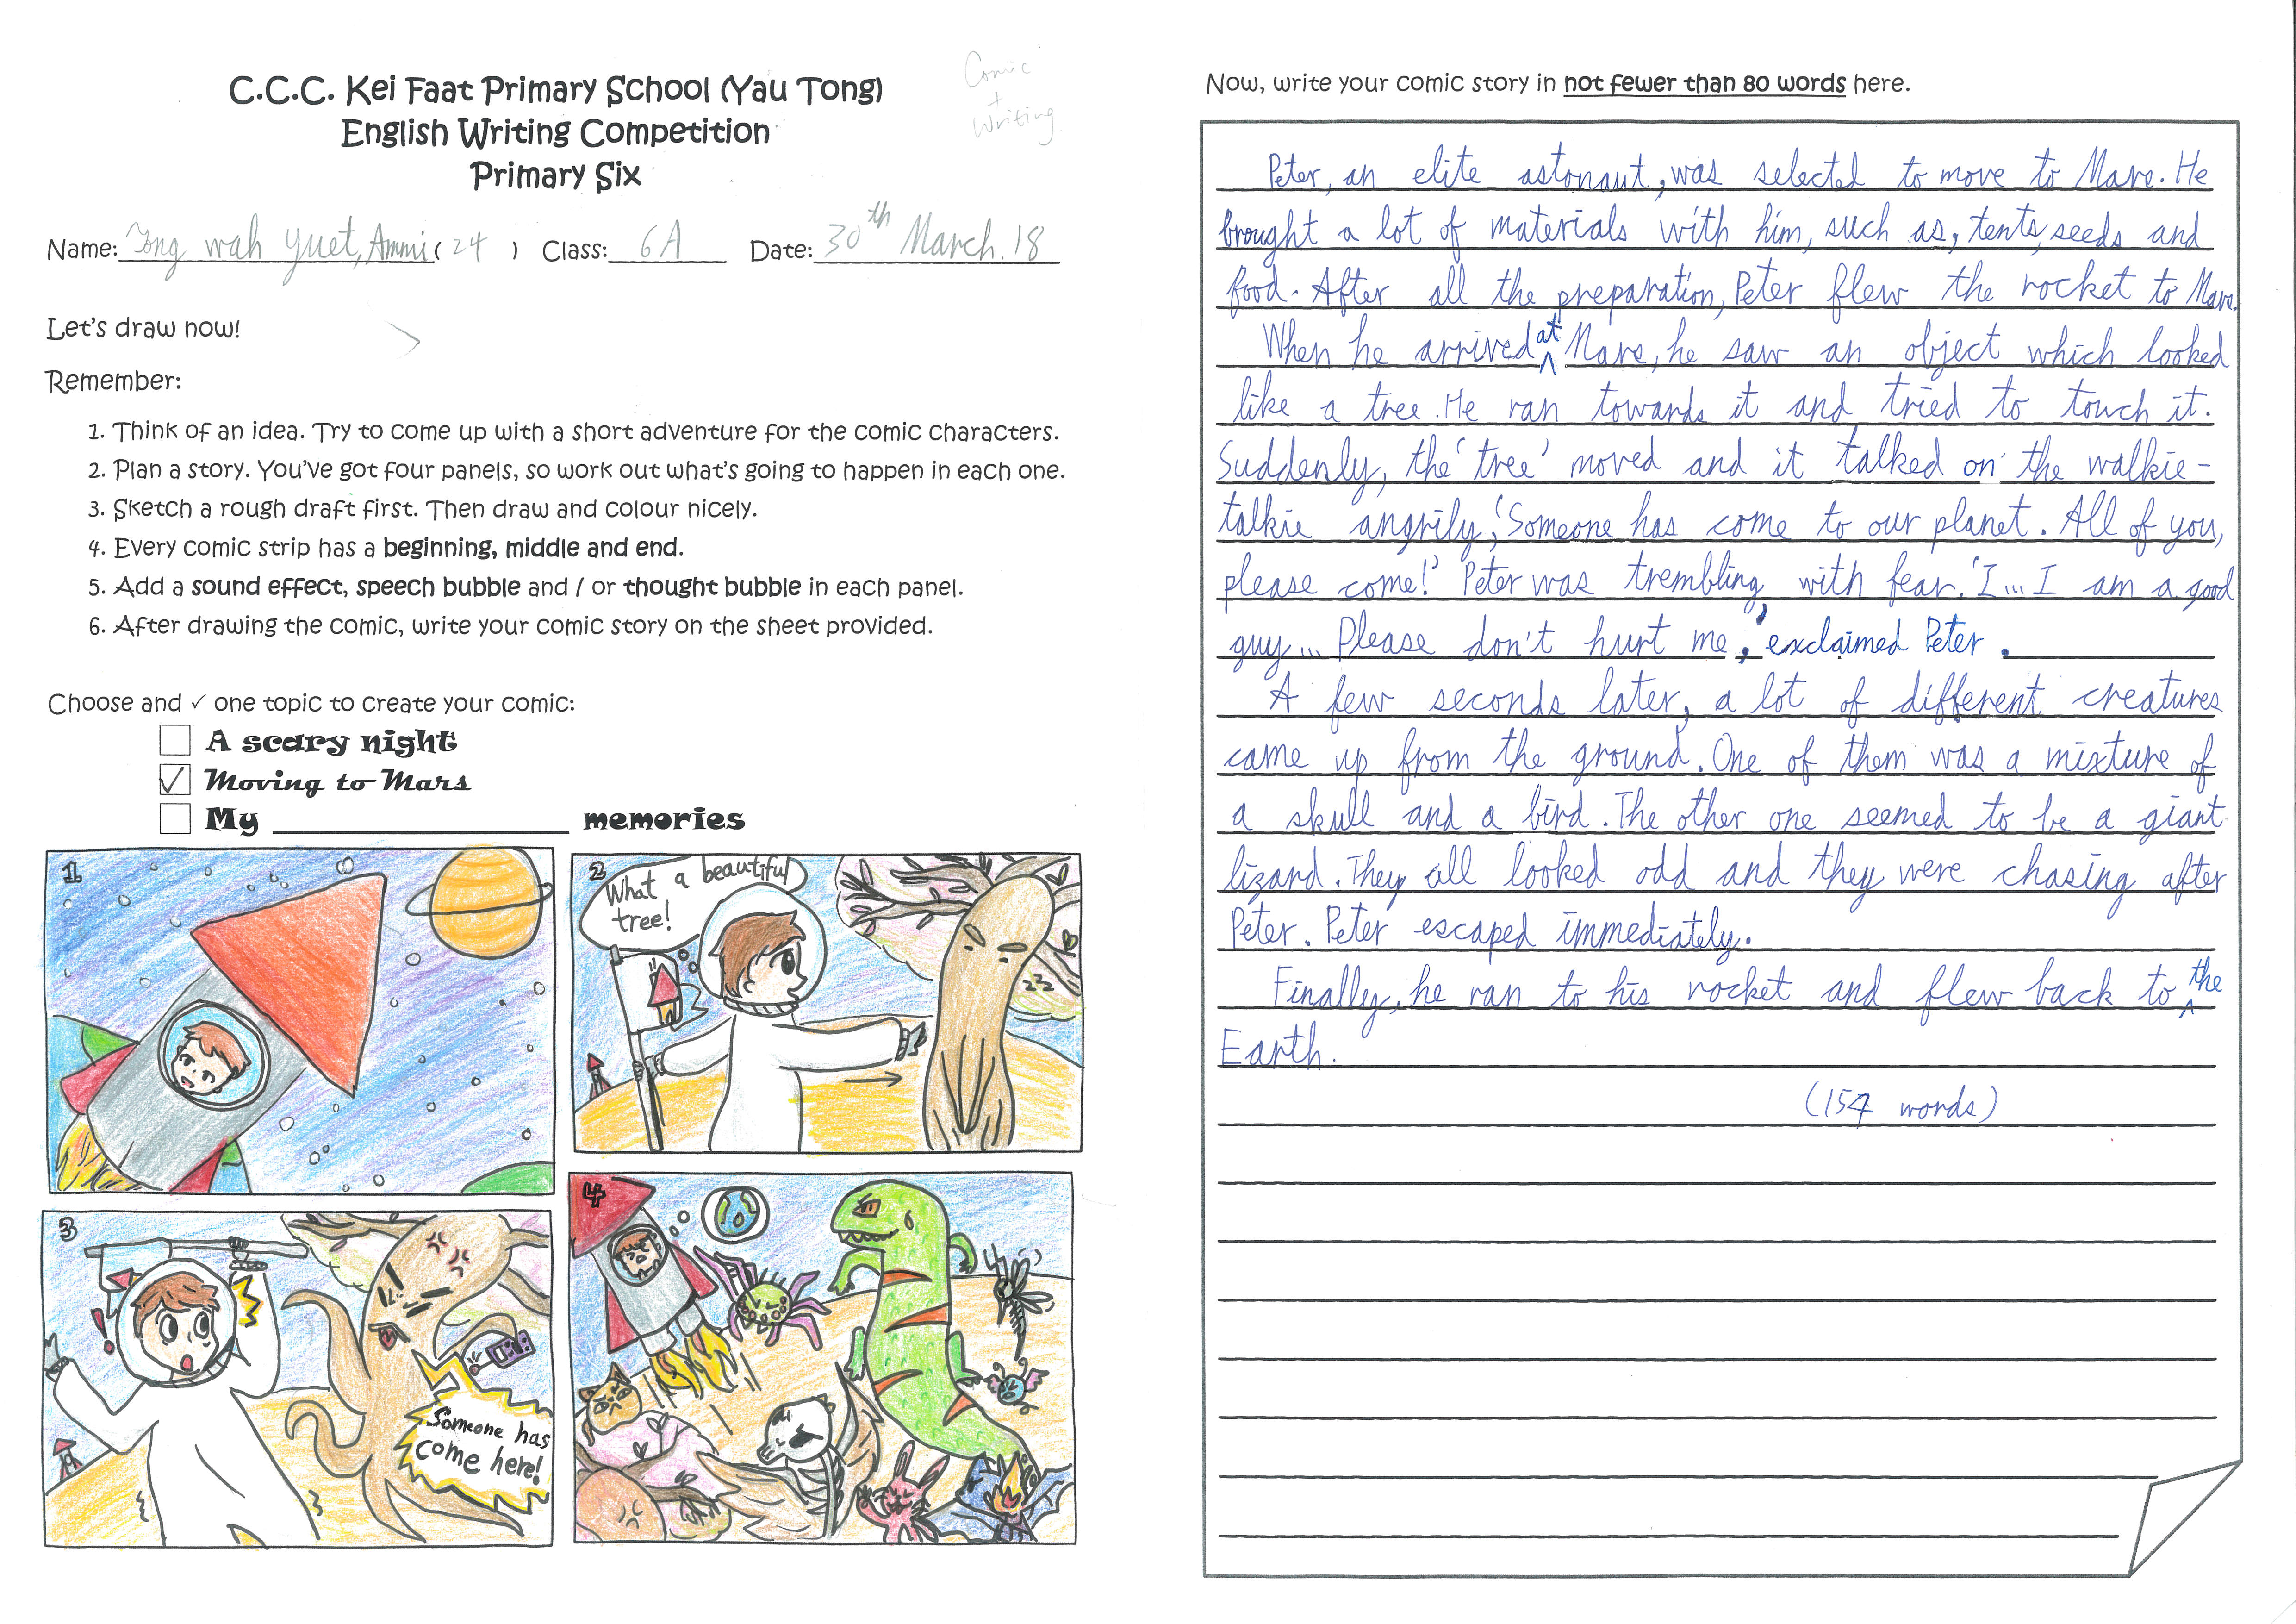 C.C.C. Kei Faat Primary School (Yau Tong)
English Writing Competition
Primary Six
Comic
+
Writing
Name: Tong wah yuet, Ammi (24) Class: 6A Date: 30th March. 18
Let's draw now!
Remember:
1. Think of an idea. Try to come up with a short adventure for the comic characters.
2. Plan a story. You've got four panels, so work out what's going to happen in each one.
3. Sketch a rough draft first. Then draw and colour nicely.
4. Every comic strip has a beginning, middle and end.
5. Add a sound effect, speech bubble and / or thought bubble in each panel.
6. After drawing the comic, write your comic story on the sheet provided.
Choose and ✓ one topic to create your comic:
A scary night
✓ Moving to Mars
My ____ memories
1
2
What a beautiful
tree!
3
Someone has
come here!
4
Now, write your comic story in not fewer than 80 words here.
Peter, an elite astonaut, was selected to move to Mars. He
brought a lot of materials with him, such as, tents, seeds and
food. After all the preparation, Peter flew the rocket to Mars.
When he arrived at Mars, he saw an object which looked
like a tree. He ran towards it and tried to touch it.
Suddenly, the 'tree' moved and it talked on the walkie-
talkie angrily, 'Someone has come to our planet. All of you,
please come!' Peter was trembling with fear. 'I... I am a good
guy... Please don't hurt me,' exclaimed Peter.
A few seconds later, a lot of different creatures
came up from the ground. One of them was a mixture of
a skull and a bird. The other one seemed to be a giant
lizard. They all looked odd and they were chasing after
Peter. Peter escaped immediately.
Finally, he ran to his rocket and flew back to the
Earth.
(154 words)